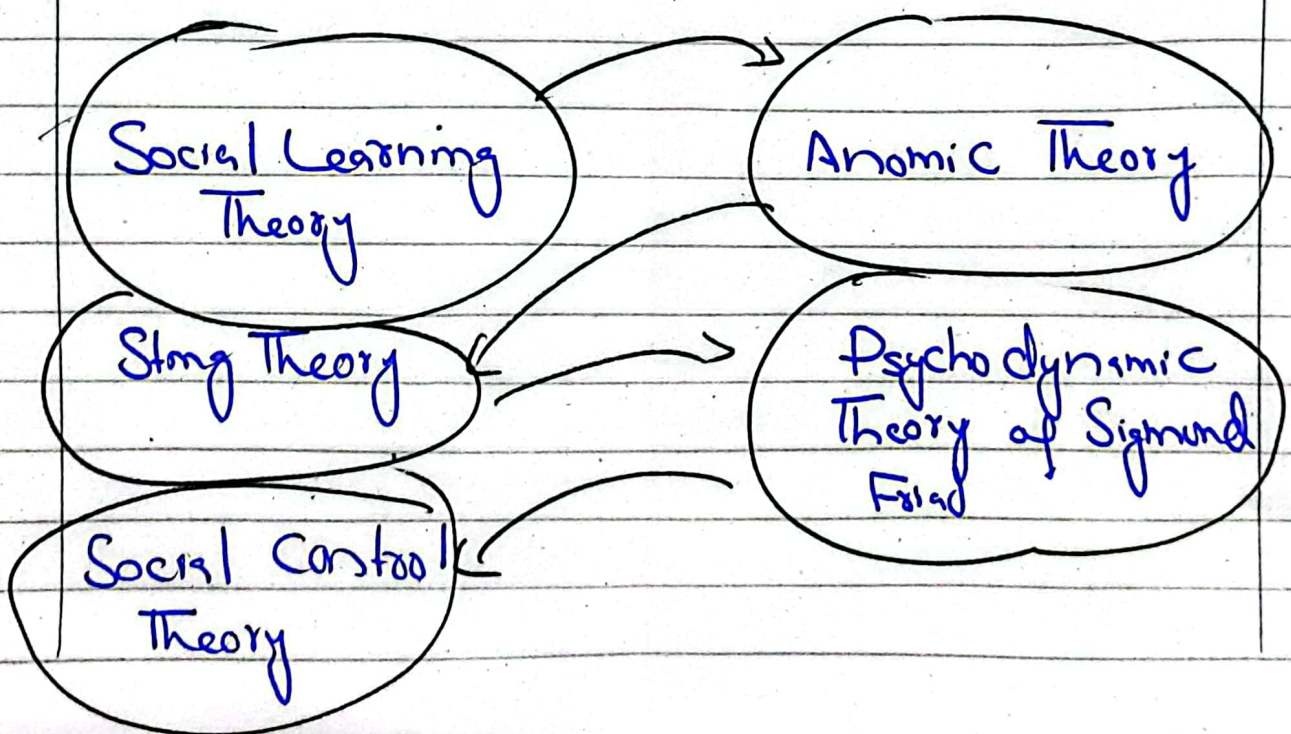 Social Learning
Theory
Anomic Theory
Stong Theory
Psychodynamic
Theory of Sigmund
Social Control
Theory